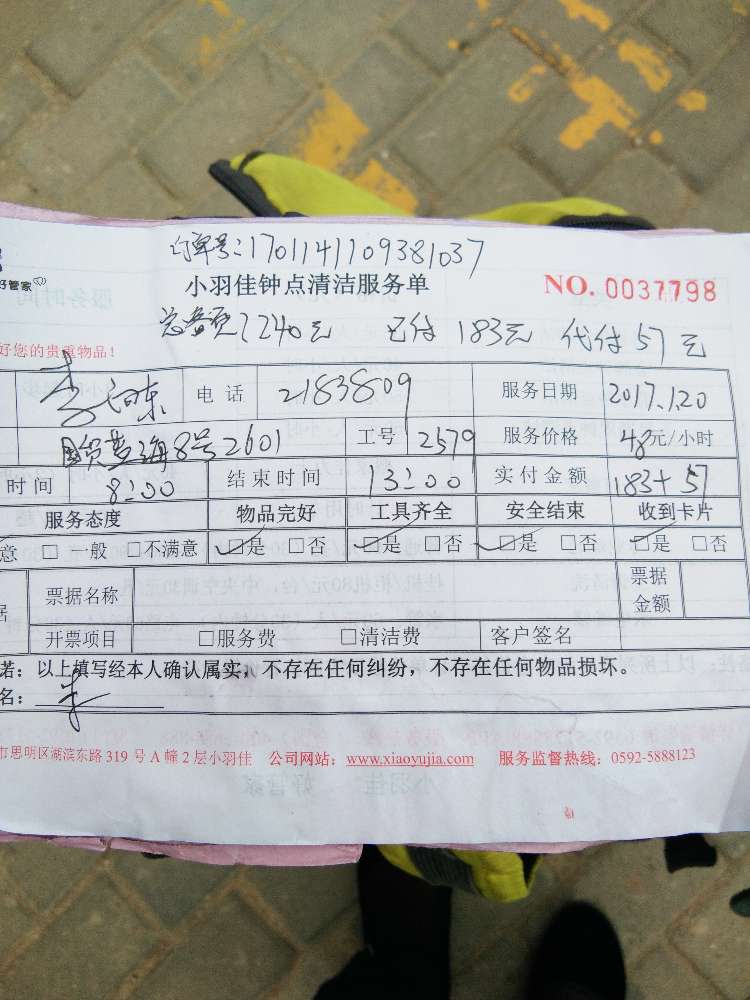 订单号:1701141109381037
好管家
小羽佳钟点清洁服务单 NO. 0037798
总费用240元 已付183元 代付57元
好您的贵重物品!
李 东 电话 2183809 服务日期 2017.1.20
国贸蓝海8号2601 工号 2579 服务价格 48元/小时
时间 8:00 结束时间 13:00 实付金额 183+57
服务态度 物品完好 工具齐全 安全结束 收到卡片
意 □一般 □不满意 □是 □否 □是 □否 □是 □否 □是 □否
据 票据名称 票据金额
开票项目 □服务费 □清洁费 客户签名
若:以上填写经本人确认属实,不存在任何纠纷,不存在任何物品损坏。
名: 李
市思明区湖滨东路319号A幢2层小羽佳 公司网站:www.xiaoyujia.com 服务监督热线:0592-5888123